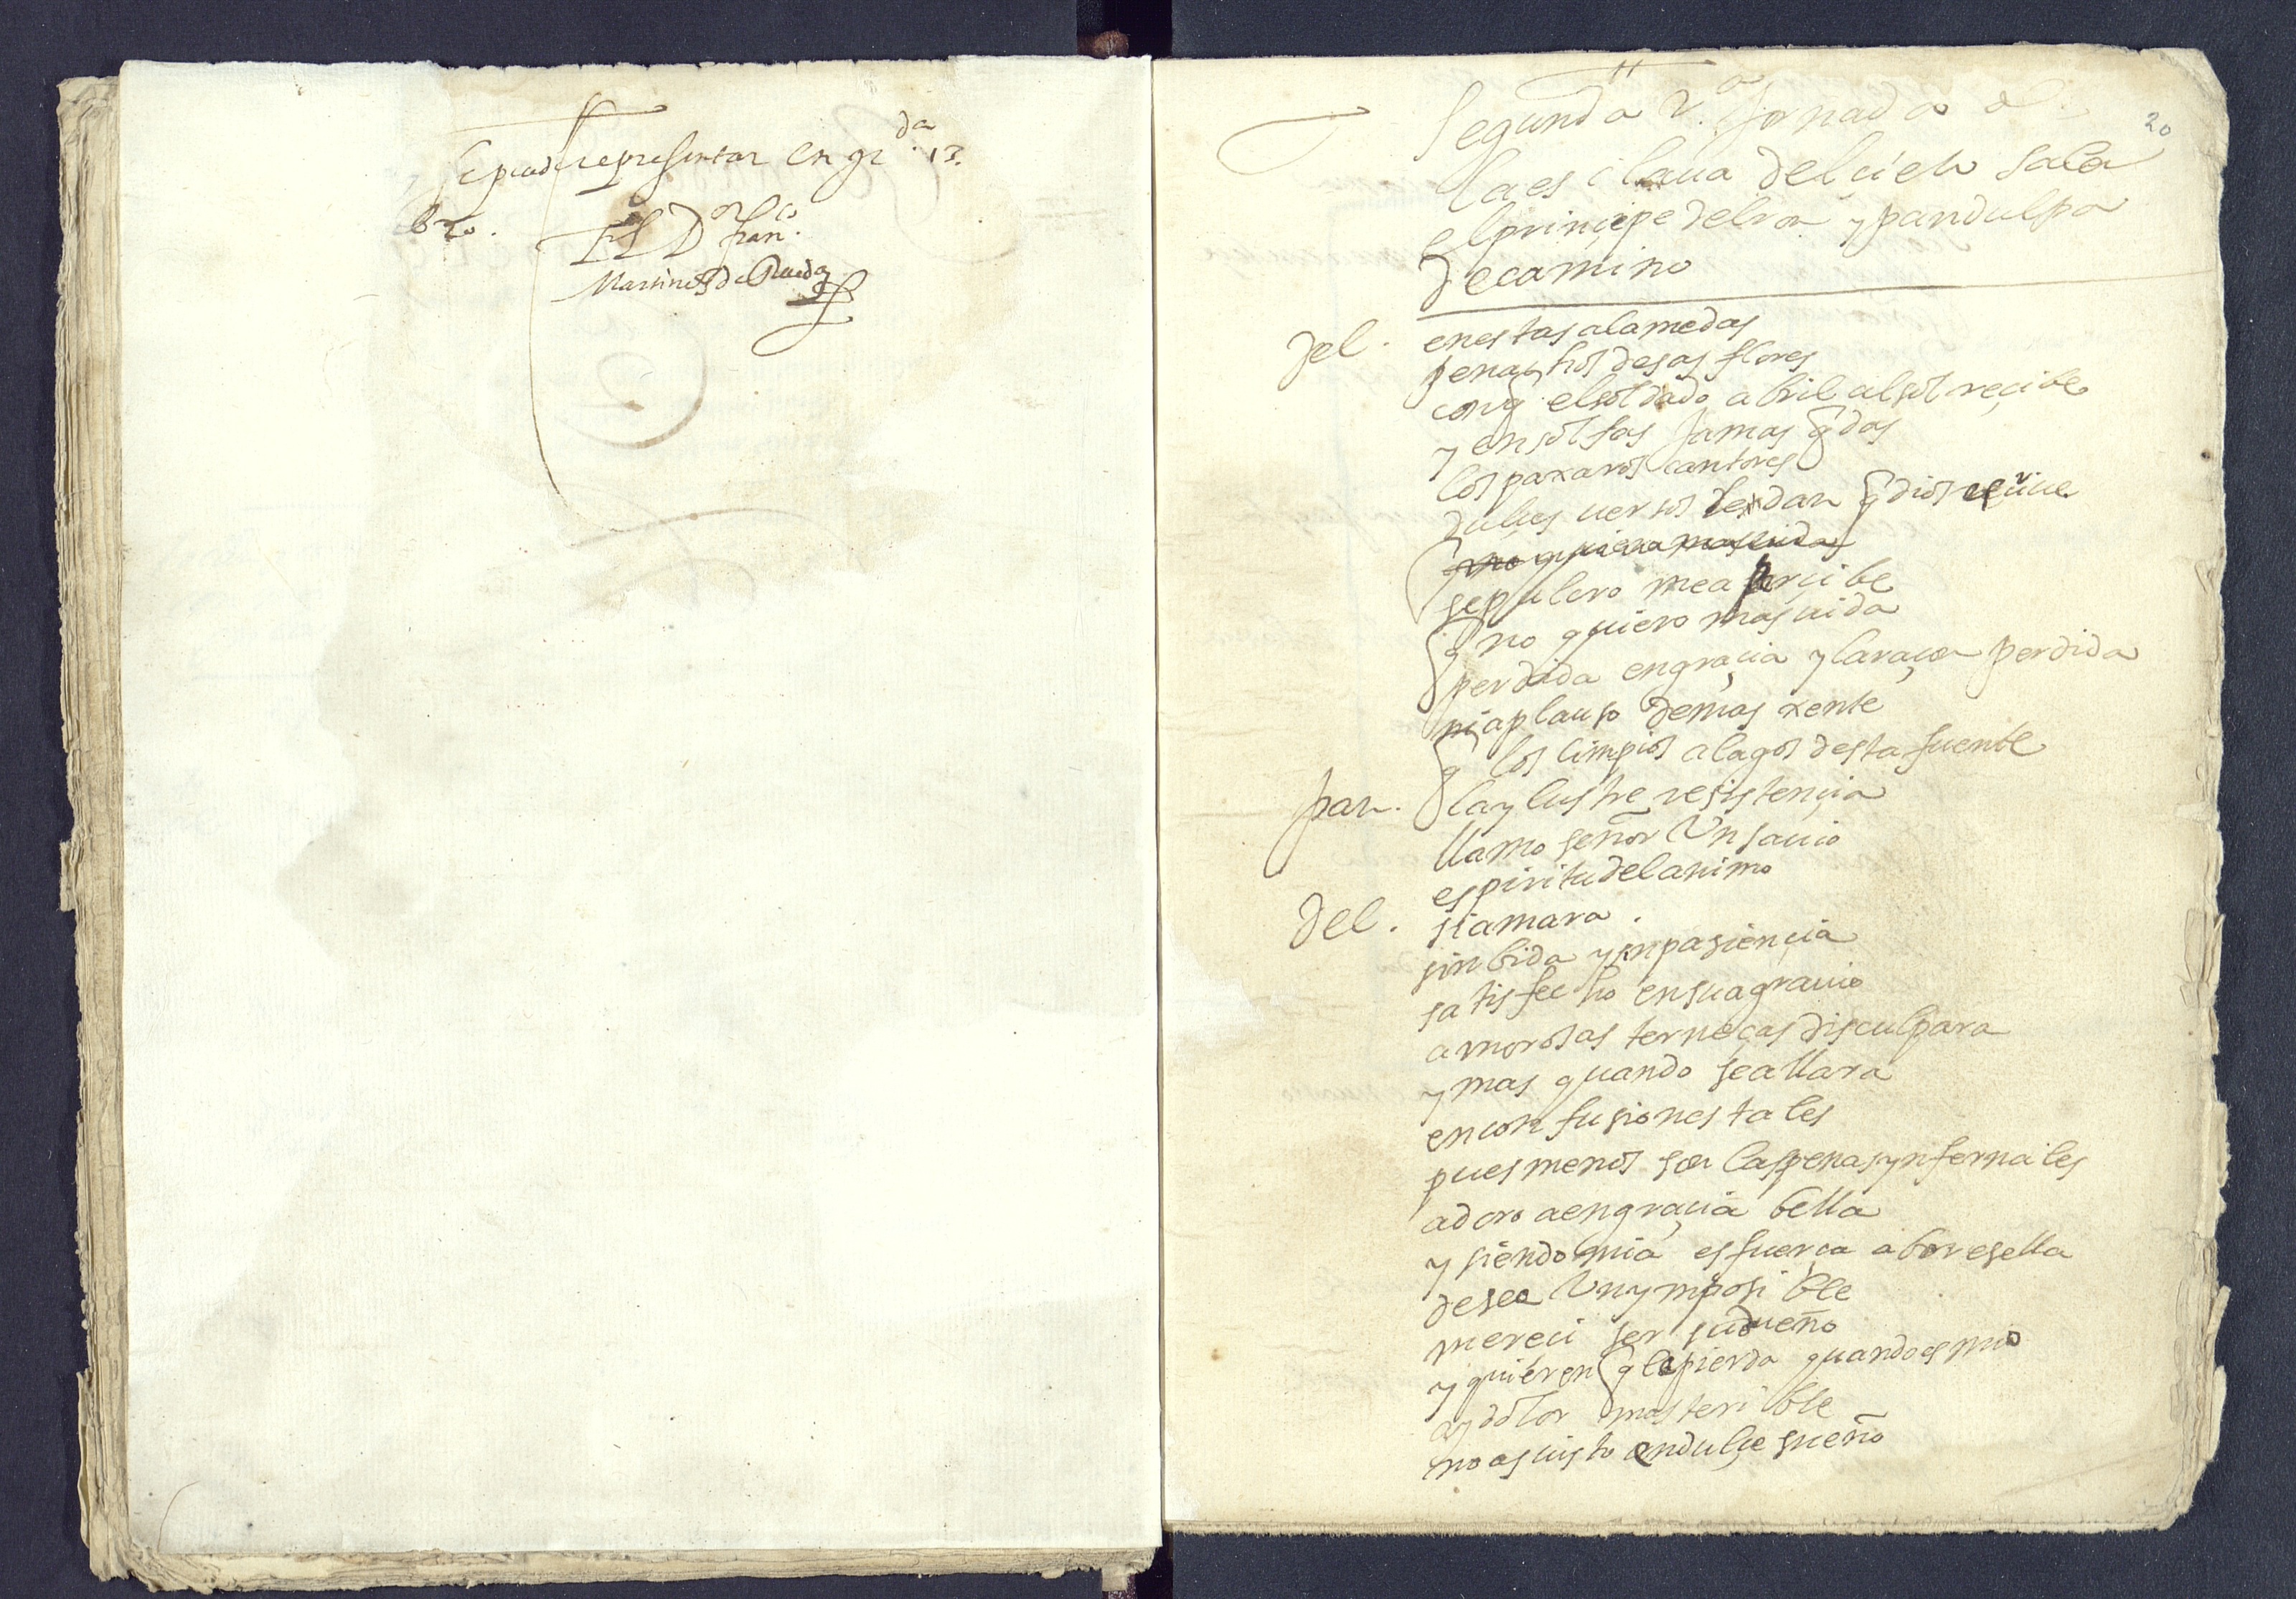 Se puede representar en gr.da 13.
620.
El Dor fran.co
Martinez de Rueda
20
Segunda 2.a Jornada d
la esclaua del çielo sale
el prinçipe delva y pandulpo
de camino
del. en estas alamedas
penachos desas flores
con q el soldado abril al sol reçibe
y en solfas jamas qdas
los paxaros cantores
dulces uersos le dan q dios uiue
q no quiero mas uida
sepulcro me aperçibe
q no quiero mas uida
perdida engraçia y la raçon perdida
ni aplauso de mas xente
q los limpios alagos desta fuente
pan. la ylustre resistençia
llamo señor Un sauio
espiritu del animo
del. si amara.
sin bida y sin pasiençia
satisfecho en su agrauio
amorosas terneças disculpara
y mas quando se allara
en confusiones tales
pues menos son las penas ynfernales
adoro a engraçia bella
y siendo mia es fuerça aboresella
deseo Un ymposible
mereci ser su dueño
y quieren q la pierda quando es mio
ay dolor mas terible
no as uisto en dulçe sueño